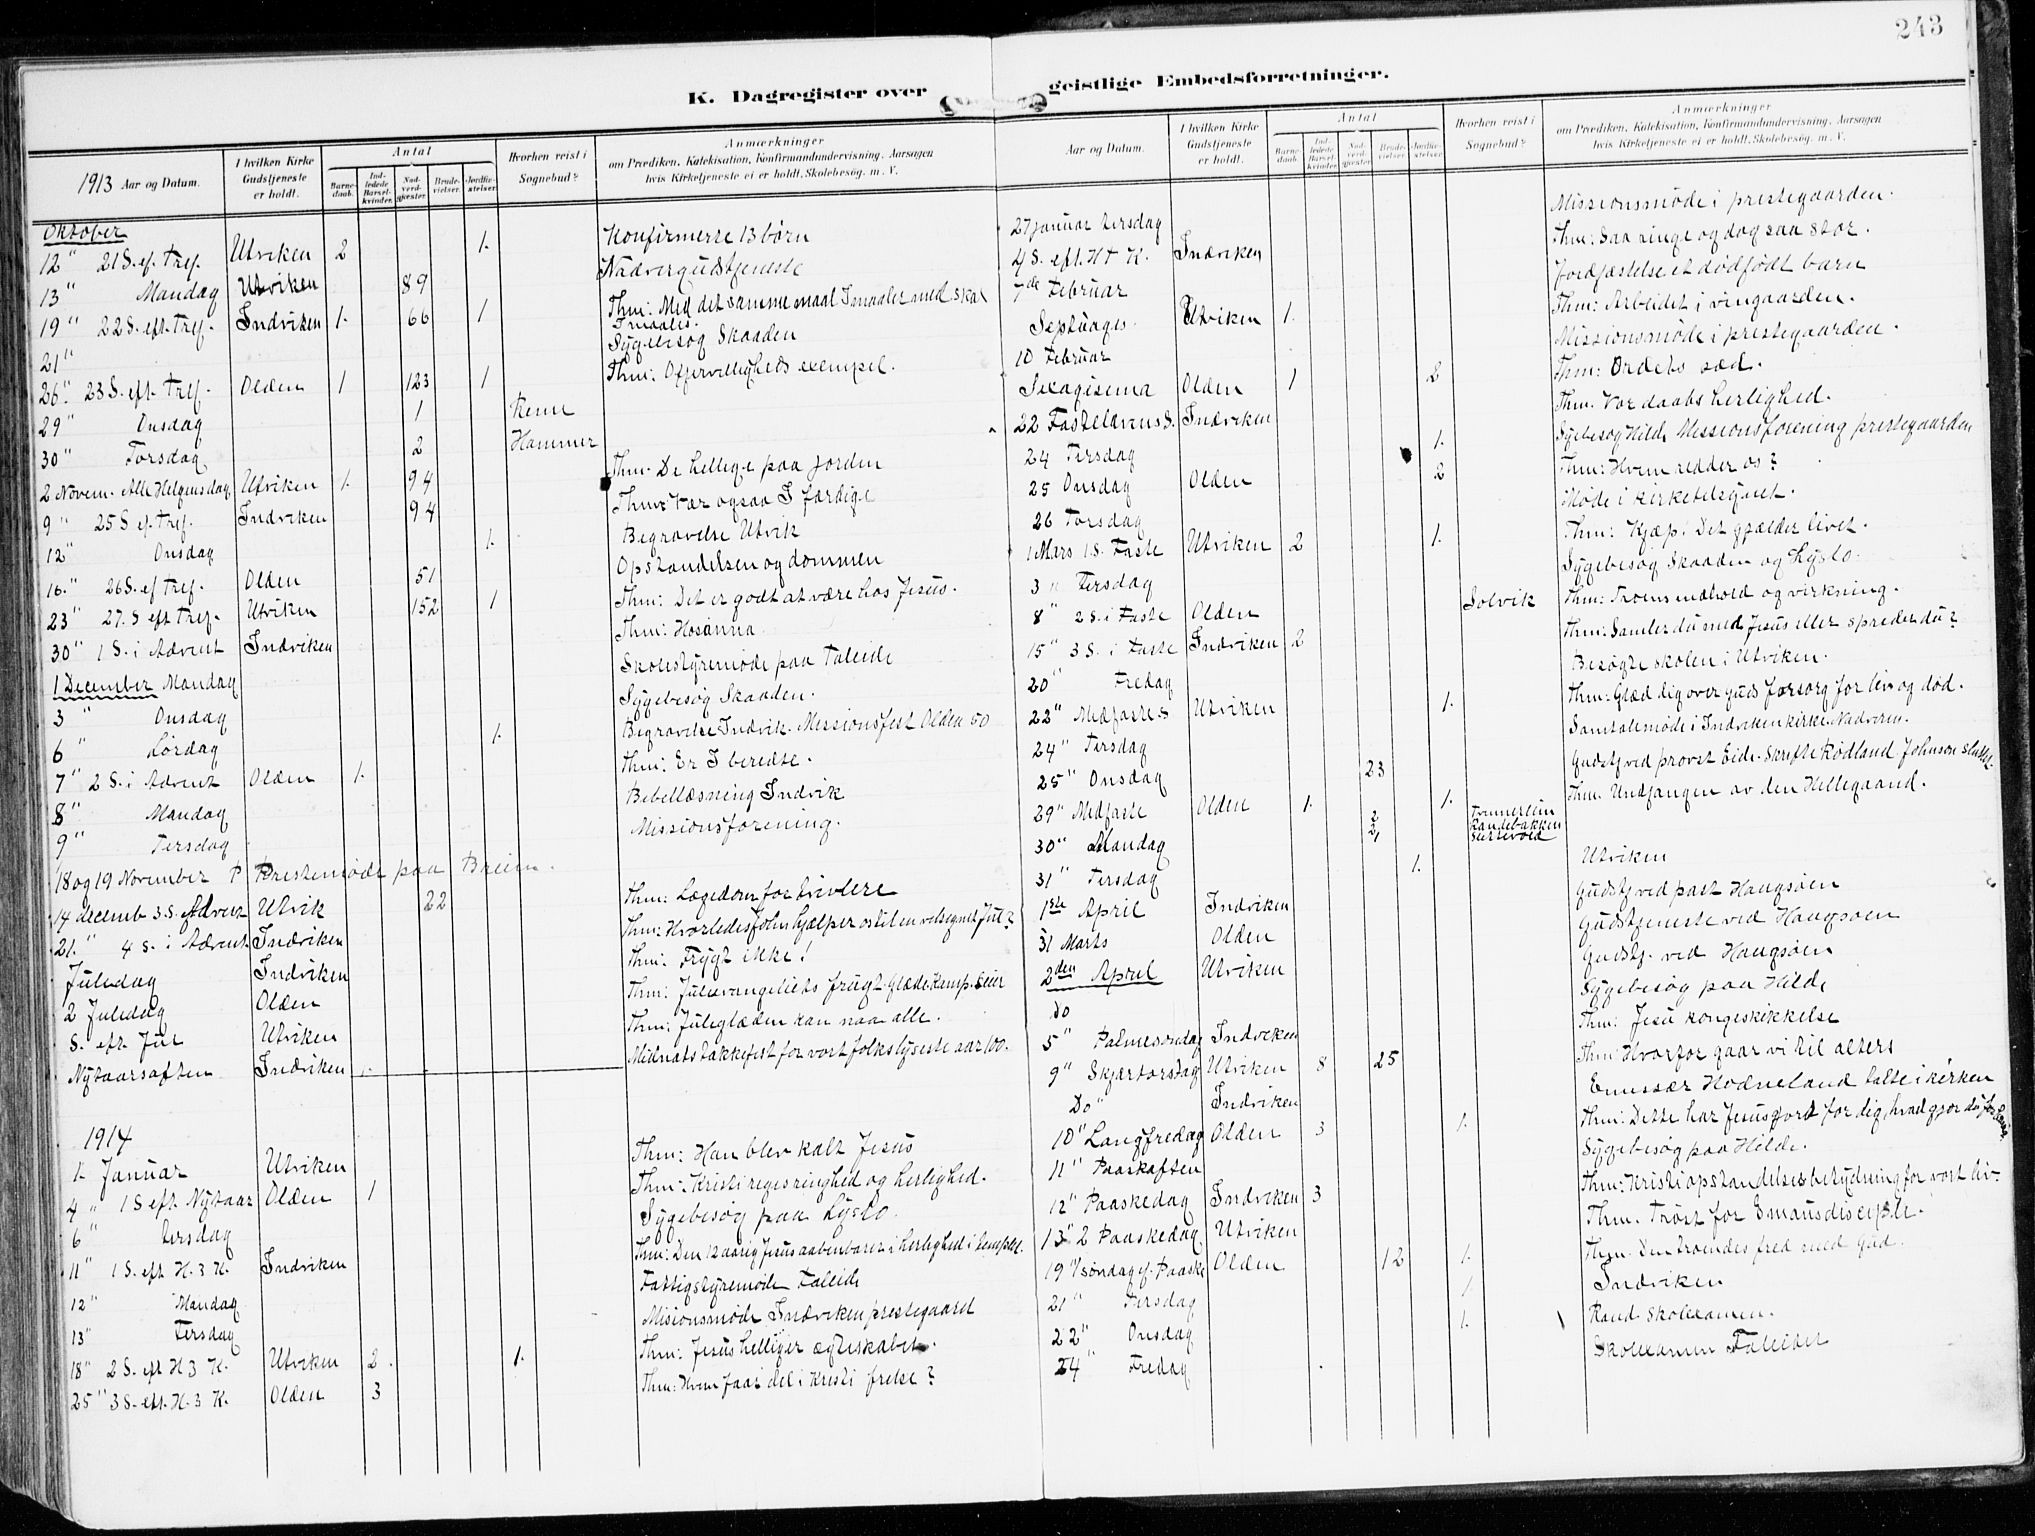 243
K. Dagregister over geistlige Embedsforretninger.
1913 Aar og Datum.
I hvilken Kirke Gudstjeneste er holdt.
Antal
Barnedaab.
Indledede Barselkvinder.
Nadverdgjester
Brudevielser.
Jordfæstelser.
Hvorhen reist i Sognebud?
Anmærkninger
om Prædiken, Katekisation, Konfirmandundervisning, Aarsagen
hvis Kirketjeneste ei er holdt, Skolebesøg. m. V.
Oktober
12" 21 S. ef. Tref. Utviken 2 1. Konfirmerte 13 børn
13" Mandag Utviken 89 Nadvergudstjeneste
19" 22 S. eft. Tref. Indviken 1. 66 1 Thm: Med det samme maal I maaler med skal I maales.
21" Sygebesøg Skaaden
26" 23 S. eft. Tref. Olden 1 123 1 Thm: Offervilligheds exempel.
29" Onsdag 1
30" Torsdag 2 Hammer
2 Novem. Alle Helgensdag Utviken 1. 94 Thm. De hellige paa jorden
9" 25 S ef. Tref. Indviken 94 Thm: Vær ogsaa I færdige
12" Onsdag 1. Begravelse Utvik
16." 26 S. ef Tref. Olden 51 Opstandelsen og dommen
23" 27. S eft Tref. Utviken 152 1 Thm: Det er godt at være hos Jesus.
30" 1 S. i Advent Indviken Thm: Hosanna
1 December Mandag Skolestyremøde paa Faleide
3" Onsdag Sygebesøg Skaaden.
6" Lørdag 1. Begravelse Indvik. Missionsfest Olden 50
7" 2 S. i Advent Olden 1. Thm: Er I beredte.
8" Mandag Bibellæsning Indvik
9" Tirsdag Missionsforening.
18 og 19 November Prestemøde paa Breim.
14 decemb 3 S. Advent Utvik 22 Thm: Lægedom for tvivlere
21." 4 S. i Advent Indviken Thm: Hvorledes John hjælper os til en velsignet Jul?
Juledag Indviken Thm: Frygt ikke!
2 Juledag Olden Thm: Juleevangeliets frugt. Glæde. Kamp. Seier
S. eft. Jul Utviken Thm: Juleglæden kan naa alle.
Nytaarsaften Indviken 1. Midnatstakkefest for vort folks lyseste aar 100.
1914
1. Januar Utviken Thm: Han blev kalt Jesus
4" 1 S eft. Nytaar Olden 1 Thm: Kristi ringhed og herlighed.
6" Tirsdag Sygebesøg paa Lyslo.
11" 1 S. eft H. 3 K. Indviken Thm: Den 12 aarig Jesus aabenbarer i herlighed i templet.
12" Mandag Fattigstyremøde Faleide
13" Tirsdag Misionsmøde Indviken prestegaard
18" 2 S. eft H 3 K. Utviken 2. 1. Thm: Jesus helliger ægteskabet.
25" 3 S. eft. H. 3 K. Olden 3 Thm: Hvem faar del i Kristi frelse?
Aar og Datum.
I hvilken Kirke Gudstjeneste er holdt.
Antal
Barnedaab.
Indledede Barselkvinder
Nadverdgjester
Brudevielser.
Jordfæstelser.
Hvorhen reist i Sognebud?
Anmærkninger
om Prædiken, Katekisation, Konfirmandundervisning, Aarsagen
hvis Kirketjeneste ei er holdt. Skolebesøg. m. V.
27 januar tirsdag Missionsmøde i prestegaarden.
4 S. eft. H + K. Indviken Thm: Saa ringe og dog saa stor.
7de Februar Jordfæstelse et dødfødt barn
Septuages. Utviken 1. Thm: Arbeidet i vingaarden.
10 Februar Missionsmøde i prestegaarden.
Sexagisema Olden 1 2 Thm: Ordets sæd.
22 Fastelavns S. Indviken Thm. Vor daabs herlighed.
24 Tirsdag 1. Sygebesøg Hilde Missionsforening prestegaarden
25 Onsdag Olden 2 Thm: Hvem redder os?
26 Torsdag Møde i kirketilsynet.
1 Mars 1 S. Faste Utviken 2 1. Thm: Kjæp! Det gjælder livet.
3" Tirsdag Sygebesøg Skaaden og Lyslo.
8" 2 S. i Faste Olden Solvik Thm: Troens indhold og virkning.
15" 3 S. i Faste Indviken 2 Thm: Samler du med Jesus eller spreder du?
20" Fredag Besøgte skolen i Utviken.
22" Midfaste S Utviken 1. Thm: Glæd dig over Guds forsorg for liv og død.
24" Tirsdag Samtalemøde i Indviken kirke. Nadveren.
25" Onsdag 23 Gudstj ved provst Eide. Skrifte Rødland. Johnson sluttet.
29" Midfaste Olden 1. 1. Thm. Undfangen av den Helligaand.
30" Mandag 2 21
31" Tirsdag 1. Utviken
1ste April Indviken Gudstj ved past Haugsøen
31 Marts Olden Gudstjeneste ved Haugsøen
2den April Utviken Gudstj. ved Haugsøen
Do Sygebesøg paa Hilde
5" Palmesøndag Indviken Thm: Jesu kongeskikkelse
9" Skjærtorsdag Utviken 8 25 Thm: Hvorfor gaar vi til alters
Do" Indviken Emissær Hodneland talte i kirken
10" Langfredag Olden 3 1. Thm: Dette har Jesus gjort for dig, hvad gjør du for ham.
11" Paaskaften Sygebesøg paa Hilde.
12" Paaskedag Indviken 3 Thm: Kristi opstandelses betydning for vort liv.
13" 2 Paaskedag Utviken Thm. Trøst for Emausdisciple.
19" 1 søndag ef. Paaske Olden 12 1. Thm. Den troendes fred med Gud.
21" Tirsdag 1 Indviken
22" Onsdag 1. Rand skolexamen.
24" Fredag Skolexamen Faleide